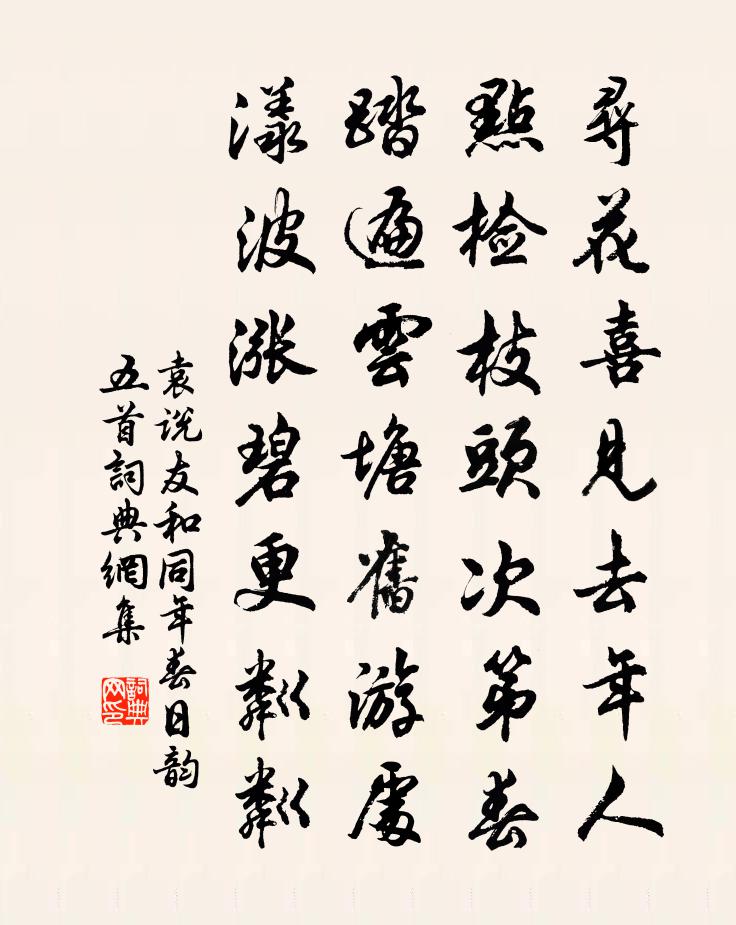 尋花喜見去年人
點檢枝頭次第春
踏遍雲塘舊游處
漾波漲碧更粼粼
袁说友和同年春日韵
五首詞典網集
詞典網印